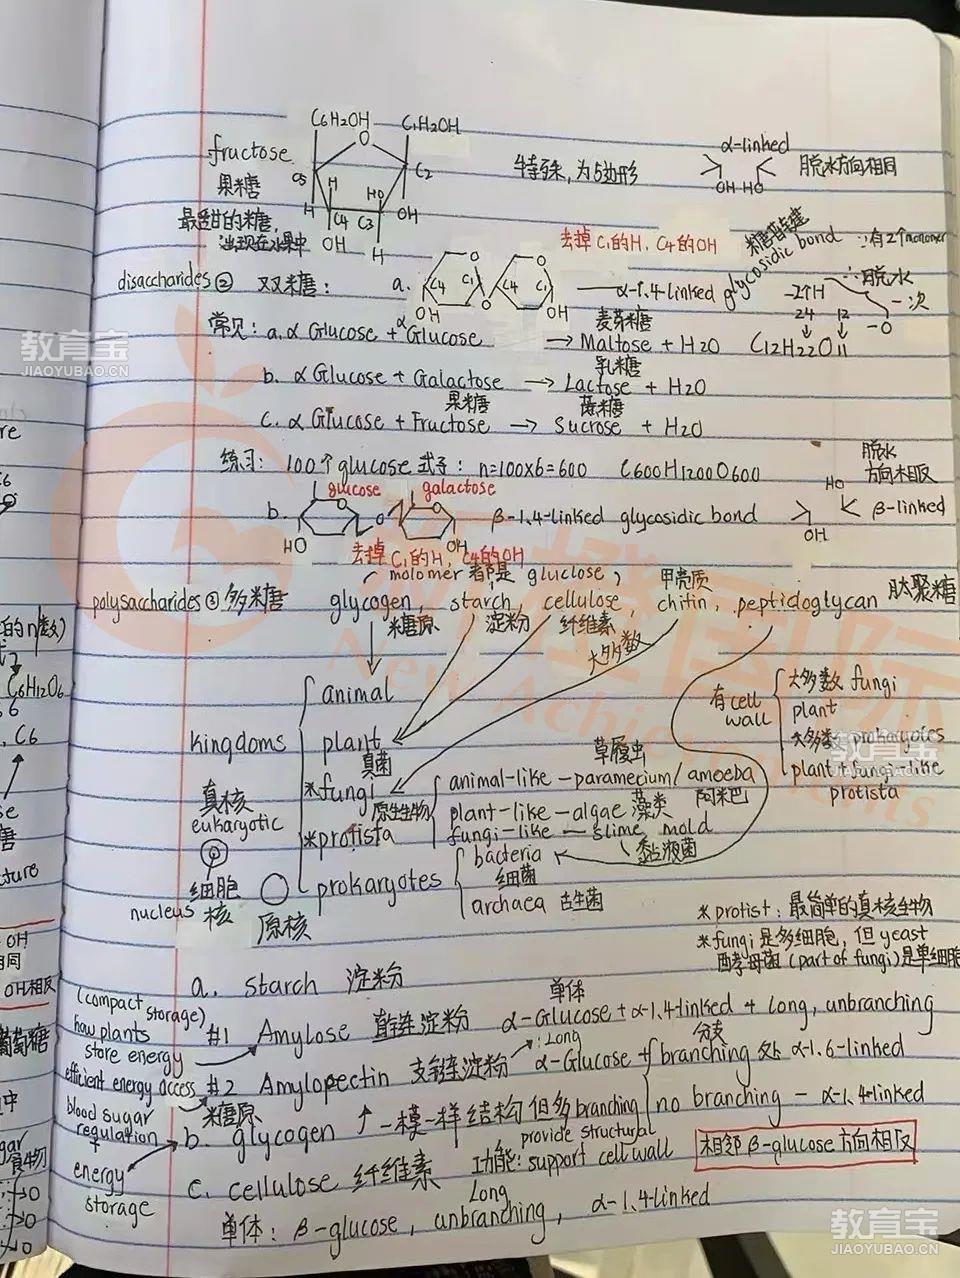 C6H2OH O C1H2OH
α-linked
fructose 特殊,为5边形 脱水方向相同
果糖 C5 H HO C2 OH HO
最甜的糖, H C4 C3 OH
出现在水果中 OH H
去掉C1的H, C4的OH 糖苷键 glycosidic bond ∵有2个monomer
disaccharides② 双糖: a. C4 C1 O C4 C1 OH OH α-1.4-linked ∴脱水一次
-2个H -O
24 12
常见: a. α Glucose + α Glucose → Maltose 麦芽糖 + H2O C12H22O11
b. α Glucose + Galactose → Lactose 乳糖 + H2O
c. α Glucose + Fructose 果糖 → Sucrose 蔗糖 + H2O
练习: 100个glucose式子: n=100x6=600 C600H1200O600
脱水方向相反
glucose galactose
b. HO O OH β-1.4-linked glycosidic bond OH HO β-linked
去掉C1的H, C4的OH
molomer 都是 gluclose,
polysaccharides③多糖 glycogen, starch, cellulose, chitin, peptidoglycan 肽聚糖
糖原 淀粉 纤维素 甲壳质
大多数
animal
有cell wall 大多数 fungi
plant
大多数 prokaryotes
plant+fungi-like protista
kingdoms plant
真菌
*fungi
草履虫
真核 eukaryotic
原生生物 animal-like - paramecium/ amoeba 阿米巴
*protista plant-like - algae 藻类
fungi-like - slime mold 黏液菌
细胞核 nucleus
原核 prokaryotes bacteria 细菌
archaea 古生菌
*protist: 最简单的真核生物
*fungi是多细胞, 但yeast
酵母菌(part of fungi)是单细胞
a. starch 淀粉
(compact storage)
how plants store energy
单体
#1 Amylose 直链淀粉 α-Glucose + α-1.4-linked + long, unbranching
efficient energy access
#2 Amylopectin 支链淀粉 : Long α-Glucose + branching 分支处 α-1.6-linked
no branching - α-1.4-linked
blood sugar regulation + energy storage
糖原
b. glycogen ↑ 一模一样结构 但多branching
provide structural
c. cellulose 纤维素 功能: support cell wall 相邻β-glucose方向相反
Long
单体: β-glucose, unbranching, α-1.4-linked
的n倍)
C6H12O6
, C6
教育宝
JIAOYUBAO.CN
教育宝
JIAOYUBAO.CN
教育宝
JIAOYUBAO.CN
New Achievements